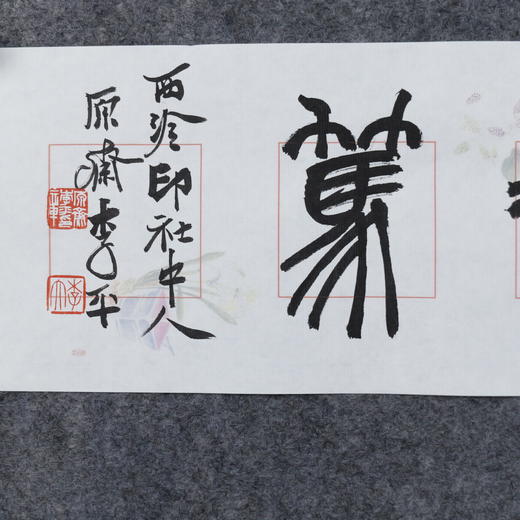 篤
西泠印社中人
原齋李平